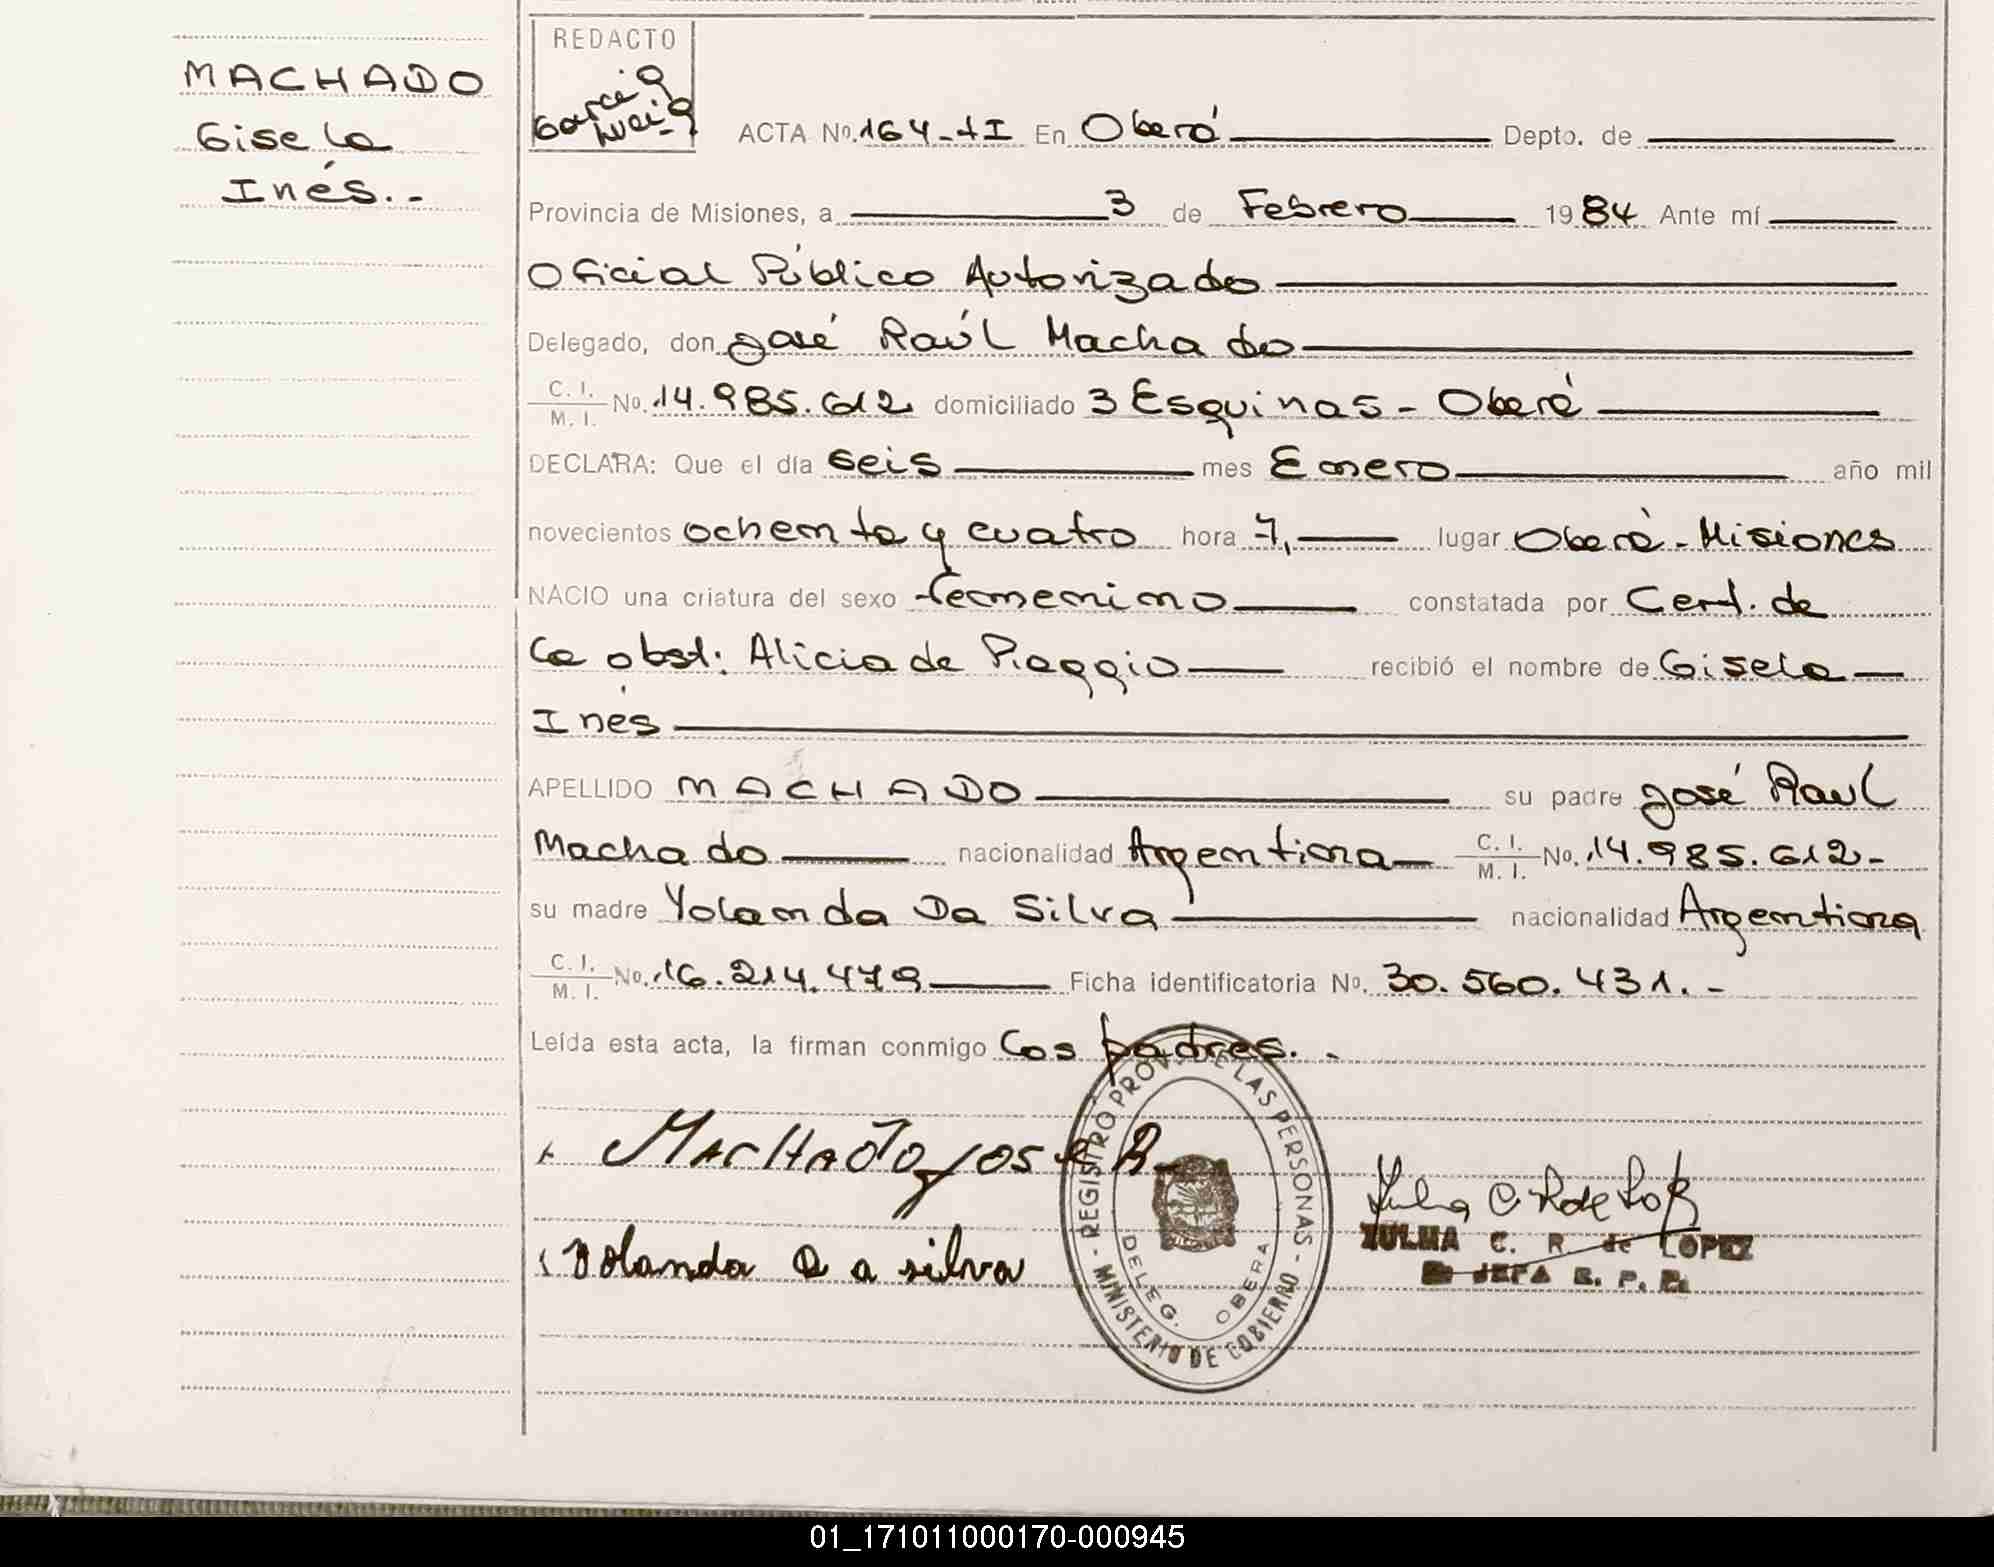 MACHADO
Gisela
Inés.-
REDACTO
García
ACTA No. 164-tI En Oberá Depto. de
Provincia de Misiones, a 3 de Febrero 1984 Ante mí
Oficial Público Autorizado
Delegado, don José Raúl Machado
C. I. / M. I. No. 14.985.612 domiciliado 3 Esquinas - Oberá
DECLARA: Que el día seis mes Enero año mil
novecientos ochenta y cuatro hora 7, lugar Oberá - Misiones
NACIO una criatura del sexo femenino constatada por Cert. de
la obst: Alicia de Piaggio recibió el nombre de Gisela
Inés
APELLIDO MACHADO su padre José Raul
Machado nacionalidad Argentina C. I. / M. I. No. 14.985.612-
su madre Yolanda Da Silva nacionalidad Argentina
C. I. / M. I. No. 16.214.479 Ficha identificatoria No. 30.560.431.-
Leída esta acta, la firman conmigo los padres.-
Machado José R
Yolanda D a silva
- REGISTRO PROV. DE LAS PERSONAS -
MINISTERIO DE GOBIERNO
DELEG. OBERA
ZULMA C. R. de LOPEZ
JEFA R. P. P.
01_171011000170-000945